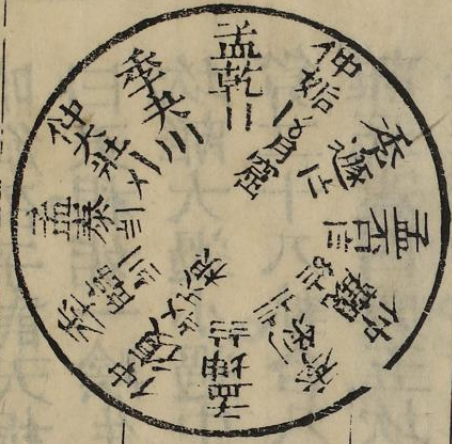 孟乾
仲姤
月窟
季遯
孟否
仲觀
季剝
孟坤
仲復
季臨
孟泰
仲大壯
季夬